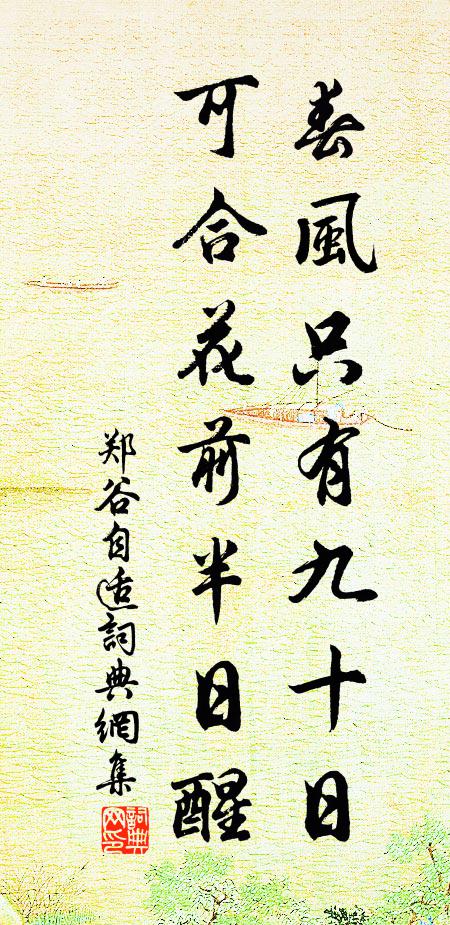 春風只有九十日
可合花前半日醒
郑谷自适詞典網集
詞典网印